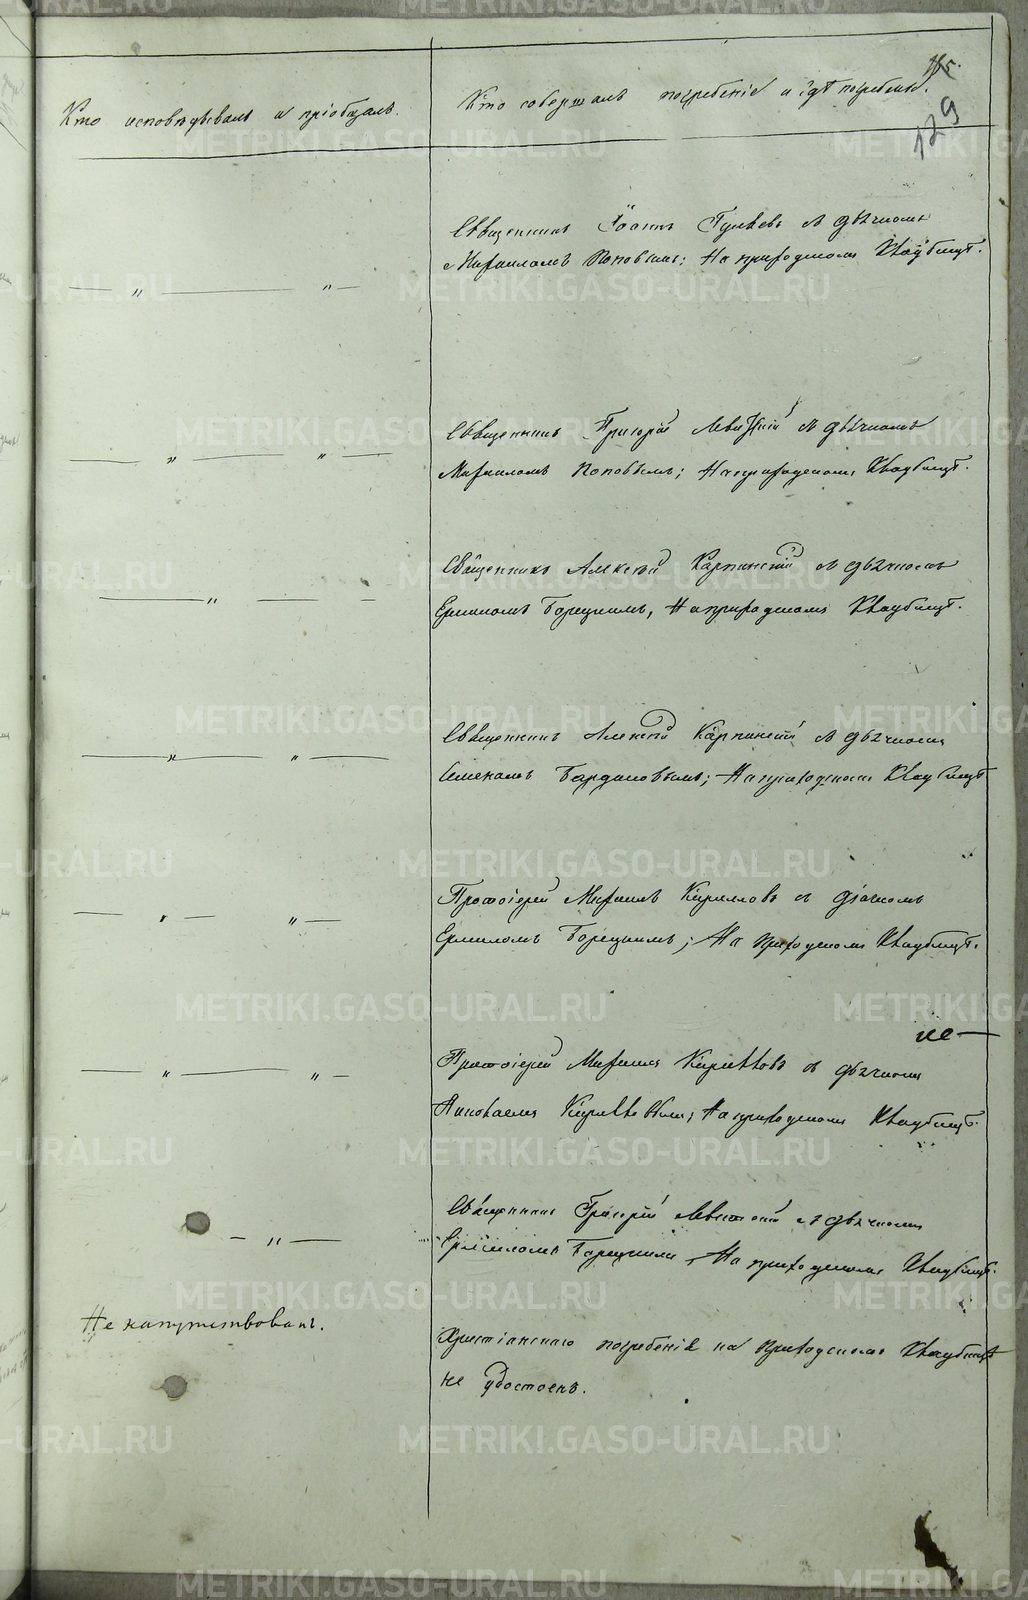 129
Кто исповѣдывалъ и пріобщалъ.
Кто совершалъ погребеніе и гдѣ погребены.
Священникъ Іоаннъ съ дьячкомъ
Михаиломъ Поповымъ; На приходскомъ Кладбищѣ.
Священникъ Григорій Левицкій съ дьячкомъ
Михаиломъ Поповымъ; На приходскомъ Кладбищѣ.
Священникъ Алексѣй Карпинскій съ дьячкомъ
Ермиломъ Борецкимъ, На приходскомъ Кладбищѣ.
Священникъ Алексѣй Карпинскій съ дьячкомъ
На приходскомъ Кладбищѣ
Протоіерей Михаилъ Кирилловъ съ дьячкомъ
Ермиломъ Борецкимъ; На приходскомъ Кладбищѣ.
Протоіерей Михаилъ Кирилловъ съ дьячкомъ
Кирилловымъ; На приходскомъ Кладбищѣ.
Священникъ Григорій Левитскій съ дьячкомъ
Ермиломъ Борецкимъ, На приходскомъ Кладбищѣ.
Не напутствованъ.
Христіанскаго погребенія на приходскомъ Кладбищѣ
не удостоенъ.
METRIKI.GASO-URAL.RU